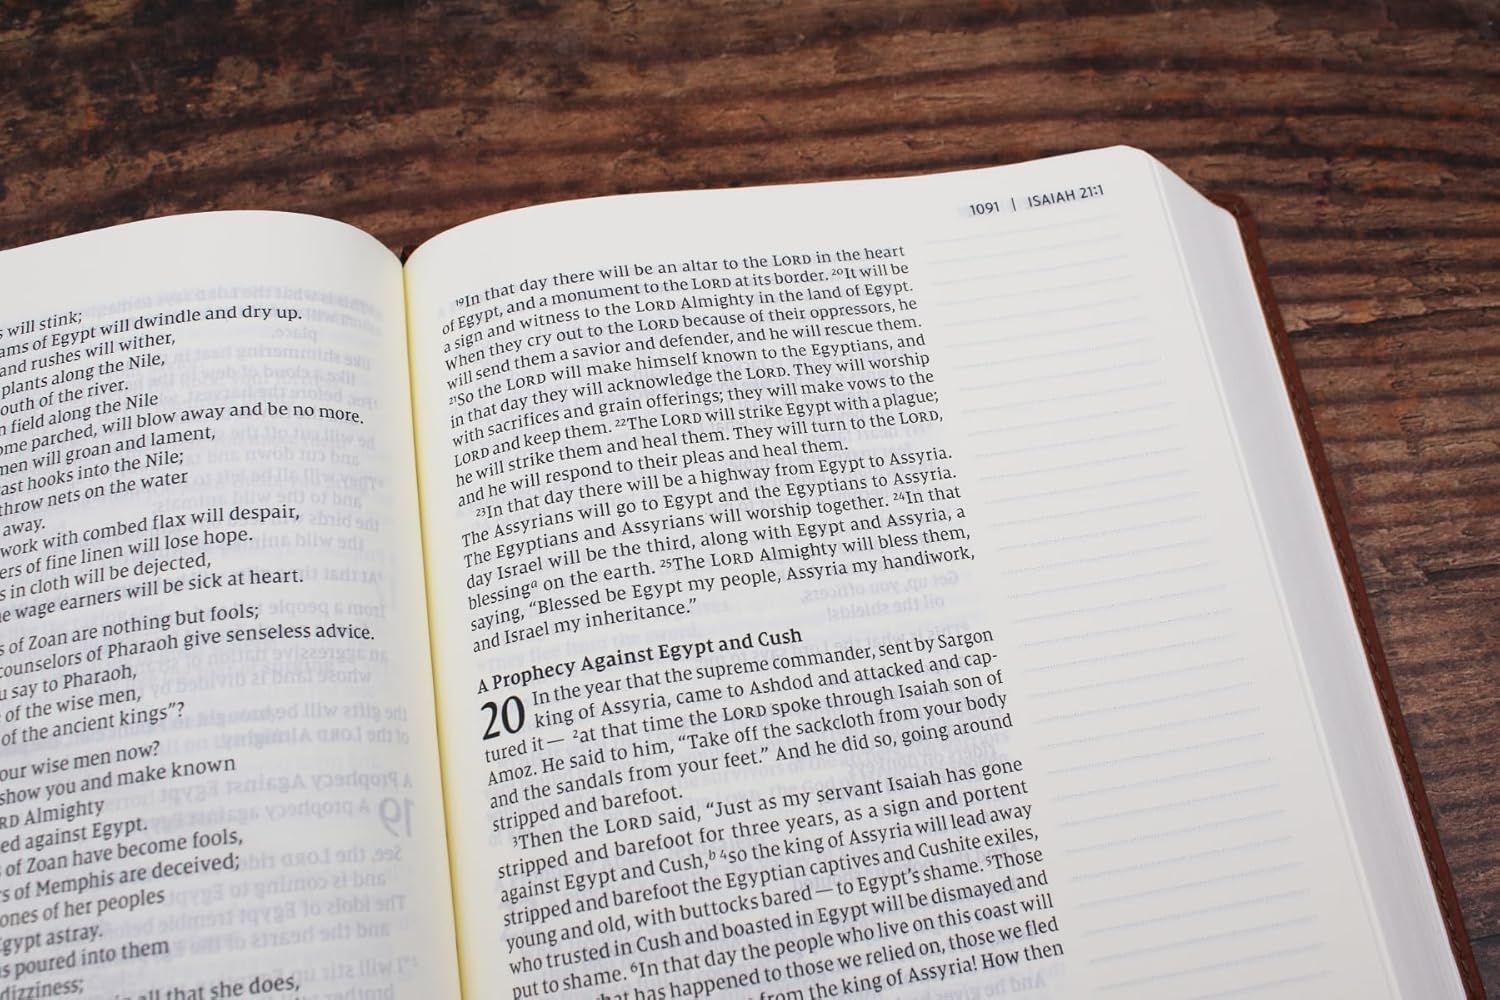 s will stink;
ams of Egypt will dwindle and dry up.
and rushes will wither,
plants along the Nile,
outh of the river.
n field along the Nile
ome parched, will blow away and be no more.
men will groan and lament,
ast hooks into the Nile;
throw nets on the water
away.
work with combed flax will despair,
ers of fine linen will lose hope.
s in cloth will be dejected,
e wage earners will be sick at heart.
s of Zoan are nothing but fools;
counselors of Pharaoh give senseless advice.
u say to Pharaoh,
of the wise men,
of the ancient kings”?
our wise men now?
show you and make known
RD Almighty
ed against Egypt.
of Zoan have become fools,
rs of Memphis are deceived;
ones of her peoples
gypt astray.
s poured into them
dizziness;
all that she does,
1091 | ISAIAH 21:1
19In that day there will be an altar to the LORD in the heart
of Egypt, and a monument to the LORD at its border. 20It will be
a sign and witness to the LORD Almighty in the land of Egypt.
When they cry out to the LORD because of their oppressors, he
will send them a savior and defender, and he will rescue them.
21So the LORD will make himself known to the Egyptians, and
in that day they will acknowledge the LORD. They will worship
with sacrifices and grain offerings; they will make vows to the
LORD and keep them. 22The LORD will strike Egypt with a plague;
he will strike them and heal them. They will turn to the LORD,
and he will respond to their pleas and heal them.
23In that day there will be a highway from Egypt to Assyria.
The Assyrians will go to Egypt and the Egyptians to Assyria.
The Egyptians and Assyrians will worship together. 24In that
day Israel will be the third, along with Egypt and Assyria, a
blessinga on the earth. 25The LORD Almighty will bless them,
saying, “Blessed be Egypt my people, Assyria my handiwork,
and Israel my inheritance.”
A Prophecy Against Egypt and Cush
20 In the year that the supreme commander, sent by Sargon
king of Assyria, came to Ashdod and attacked and cap-
tured it— 2at that time the LORD spoke through Isaiah son of
Amoz. He said to him, “Take off the sackcloth from your body
and the sandals from your feet.” And he did so, going around
stripped and barefoot.
3Then the LORD said, “Just as my servant Isaiah has gone
stripped and barefoot for three years, as a sign and portent
against Egypt and Cush,b 4so the king of Assyria will lead away
stripped and barefoot the Egyptian captives and Cushite exiles,
young and old, with buttocks bared—to Egypt’s shame. 5Those
who trusted in Cush and boasted in Egypt will be dismayed and
put to shame. 6In that day the people who live on this coast will
hat has happened to those we relied on, those we fled
from the king of Assyria! How then